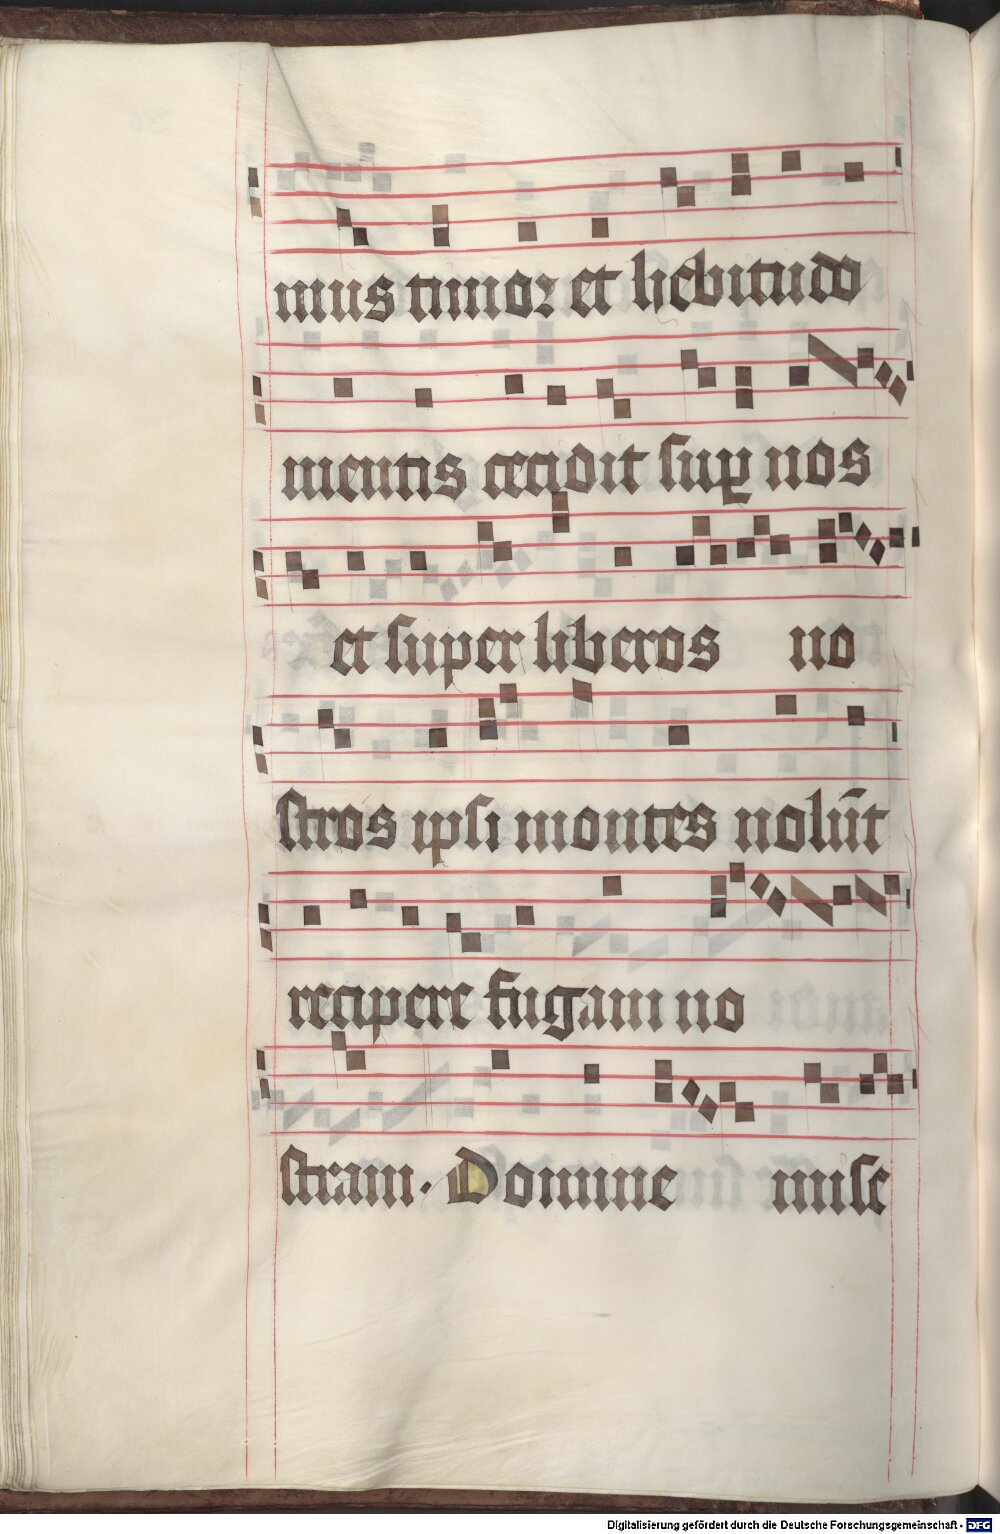 mus timor et hebitudo
mentis cecidit sup nos
et super liberos no
stros ipsi montes nolūt
recipere fugam no
stram · Domine mise
Digitalisierung gefördert durch die Deutsche Forschungsgemeinschaft - DFG